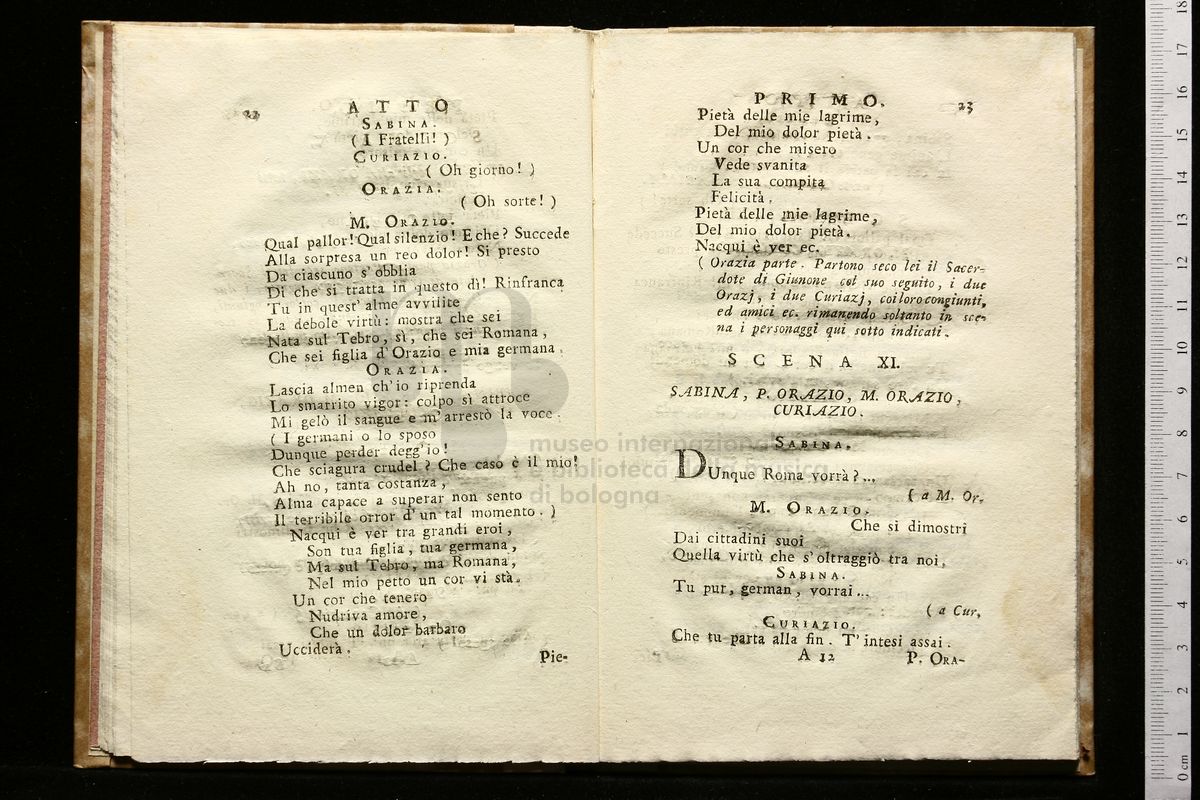 22 ATTO
SABINA.
( I Fratelli! )
CURIAZIO.
( Oh giorno! )
ORAZIA.
( Oh sorte! )
M. ORAZIO.
Qual pallor! Qual silenzio! E che? Succede
Alla sorpresa un reo dolor! Sì presto
Da ciascuno s'obblia
Di che si tratta in questo dì! Rinfranca
Tu in quest'alme avvilite
La debole virtù: mostra che sei
Nata sul Tebro, sì, che sei Romana,
Che sei figlia d'Orazio e mia germana.
ORAZIA.
Lascia almen ch'io riprenda
Lo smarrito vigor: colpo sì attroce
Mi gelò il sangue e m'arrestò la voce.
( I germani o lo sposo
Dunque perder degg'io!
Che sciagura crudel? Che caso è il mio!
Ah no, tanta costanza,
Alma capace a superar non sento
Il terribile orror d'un tal momento. )
Nacqui è ver tra grandi eroi,
Son tua figlia, tua germana,
Ma sul Tebro, ma Romana,
Nel mio petto un cor vi stà.
Un cor che tenero
Nudriva amore,
Che un dolor barbaro
Ucciderà.
Pie-
PRIMO. 23
Pietà delle mie lagrime,
Del mio dolor pietà.
Un cor che misero
Vede svanita
La sua compita
Felicità.
Pietà delle mie lagrime,
Del mio dolor pietà.
Nacqui è ver ec.
( Orazia parte. Partono seco lei il Sacer-
dote di Giunone col suo seguito, i due
Orazj, i due Curiazj, coi loro congiunti,
ed amici ec. rimanendo soltanto in sce-
na i personaggi qui sotto indicati.
SCENA XI.
SABINA, P. ORAZIO, M. ORAZIO,
CURIAZIO.
SABINA.
DUnque Roma vorrà?...
( a M. Or.
M. ORAZIO.
Che si dimostri
Dai cittadini suoi
Quella virtù che s'oltraggiò tra noi.
SABINA.
Tu pur, german, vorrai...
( a Cur.
CURIAZIO.
Che tu parta alla fin. T'intesi assai.
A 12 P. ORA-
museo internazionale
e biblioteca della musica
di bologna
0 cm 1 2 3 4 5 6 7 8 9 10 11 12 13 14 15 16 17 18